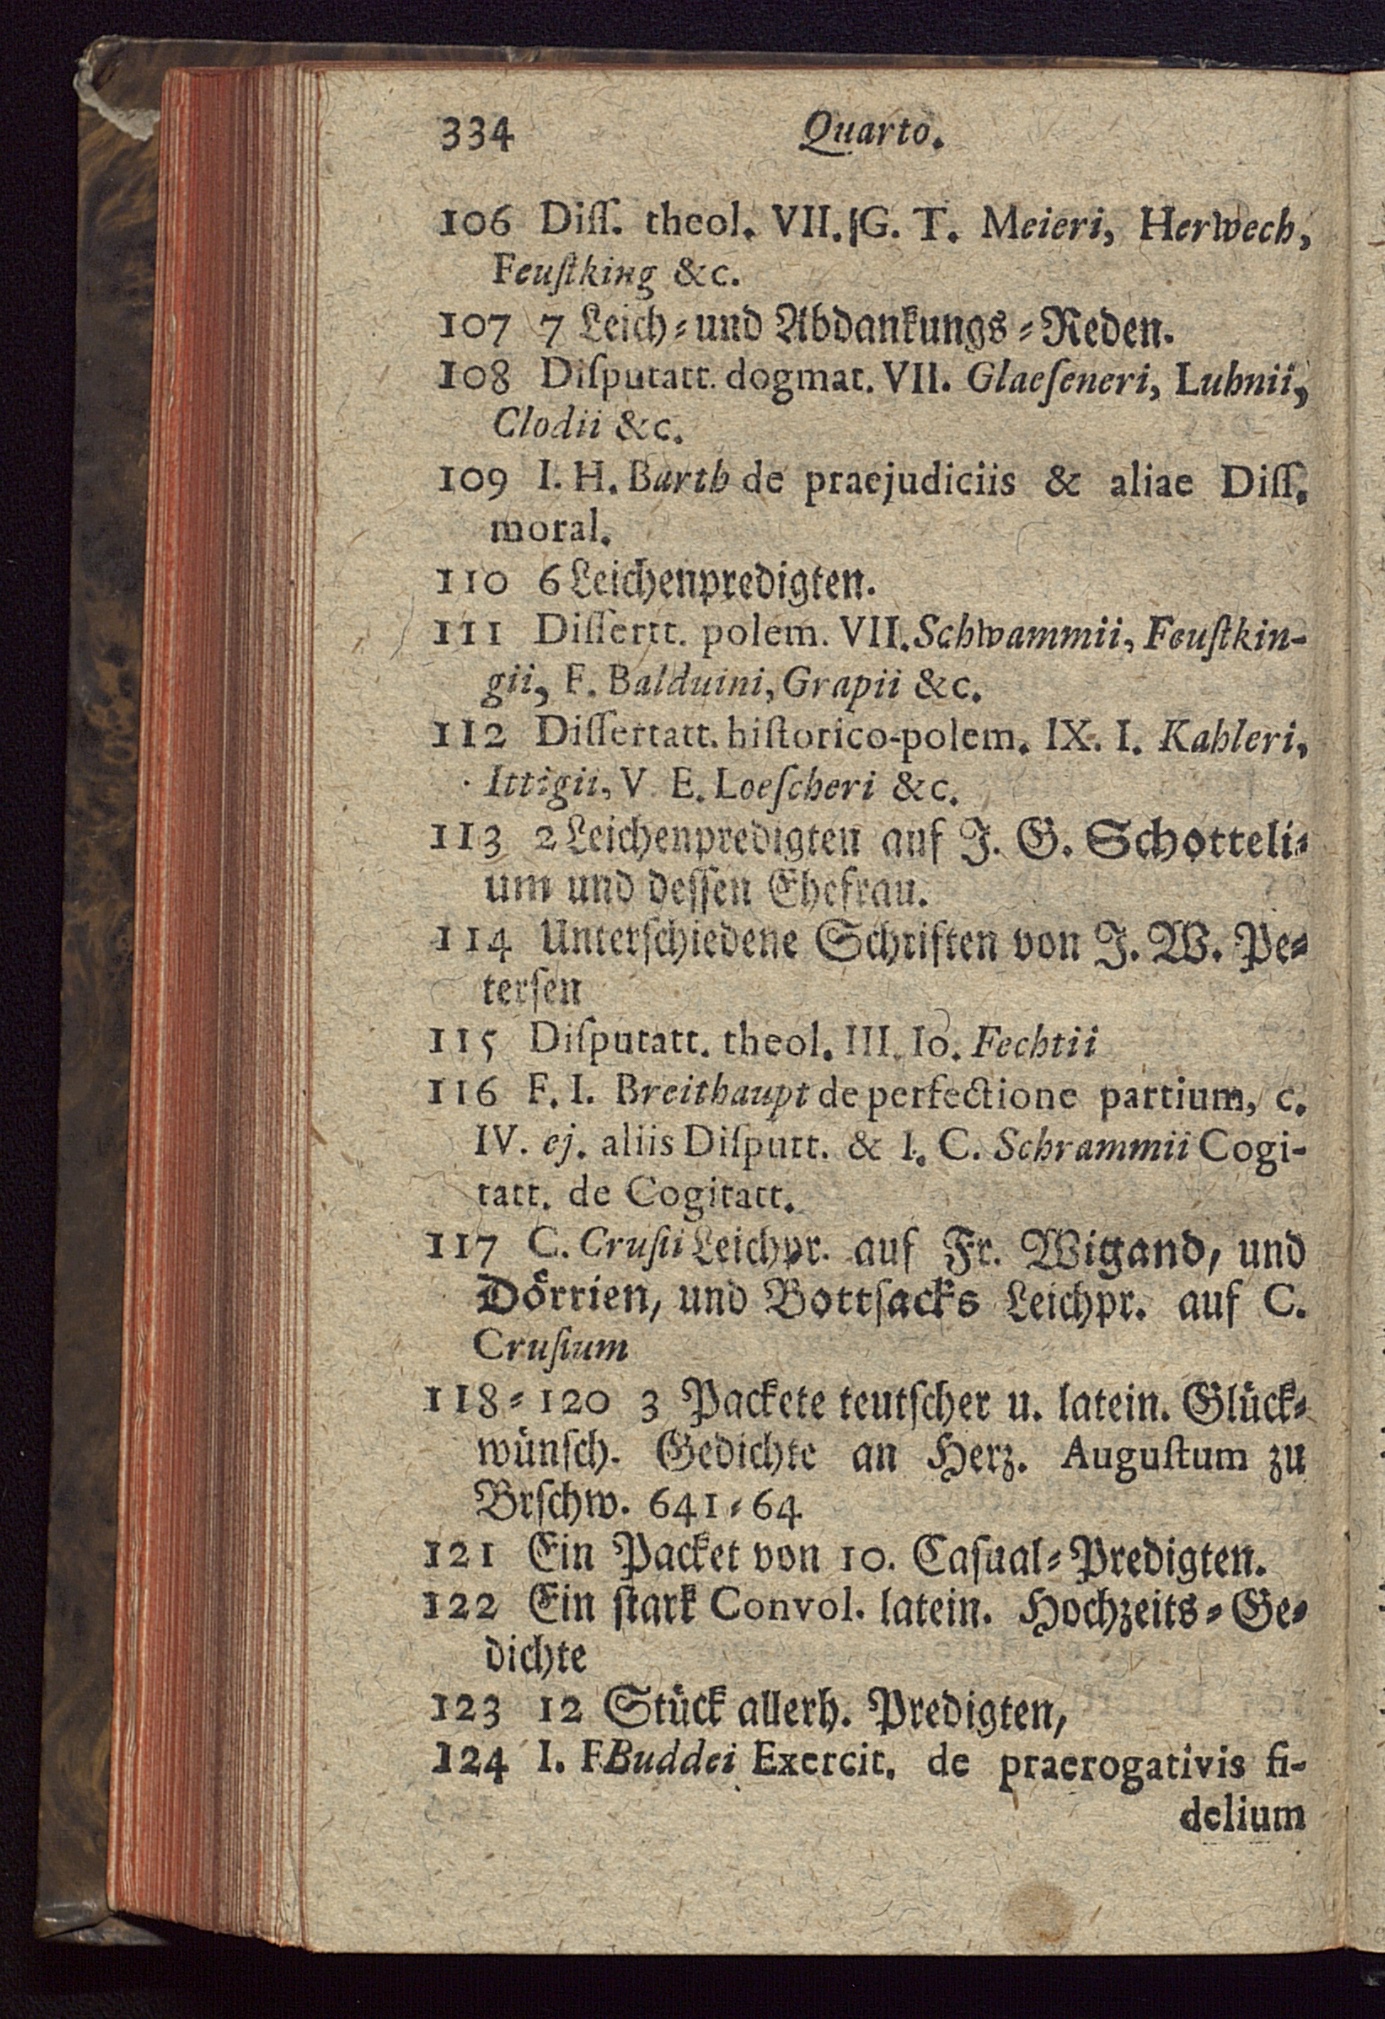 334 Quarto.
106 Diſſ. theol. VII. G. T. Meieri, Herwech,
Feuſtking &c.
107 7 Leich- und Abdankungs-Reden.
108 Diſputatt. dogmat. VII. Glaeſeneri, Luhnii,
Clodii &c.
109 I. H. Barth de praejudiciis & aliae Diſſ.
moral.
110 6 Leichenpredigten.
111 Diſſertt. polem. VII. Schwammii, Feuſtkin-
gii, F. Balduini, Grapii &c.
112 Diſſertatt. hiſtorico-polem. IX. I. Kahleri,
Ittigii, V E. Loeſcheri &c.
113 2 Leichenpredigten auf J. G. Schotteli-
um und deſſen Ehefrau.
114 Unterſchiedene Schriften von J. W. Pe-
terſen
115 Diſputatt. theol. III. Io. Fechtii
116 F. I. Breithaupt de perfectione partium, c.
IV. ej. aliis Diſputt. & I. C. Schrammii Cogi-
tatt. de Cogitatt.
117 C. Cruſii Leichpr. auf Fr. Wigand, und
Dörrien, und Bottſacks Leichpr. auf C.
Cruſium
118-120 3 Packete teutſcher u. latein. Glück-
wünſch. Gedichte an Herz. Auguſtum zu
Brſchw. 641-64
121 Ein Packet von 10. Caſual-Predigten.
122 Ein ſtark Convol. latein. Hochzeits-Ge-
dichte
123 12 Stück allerh. Predigten,
124 I. F Buddei Exercit. de praerogativis fi-
delium